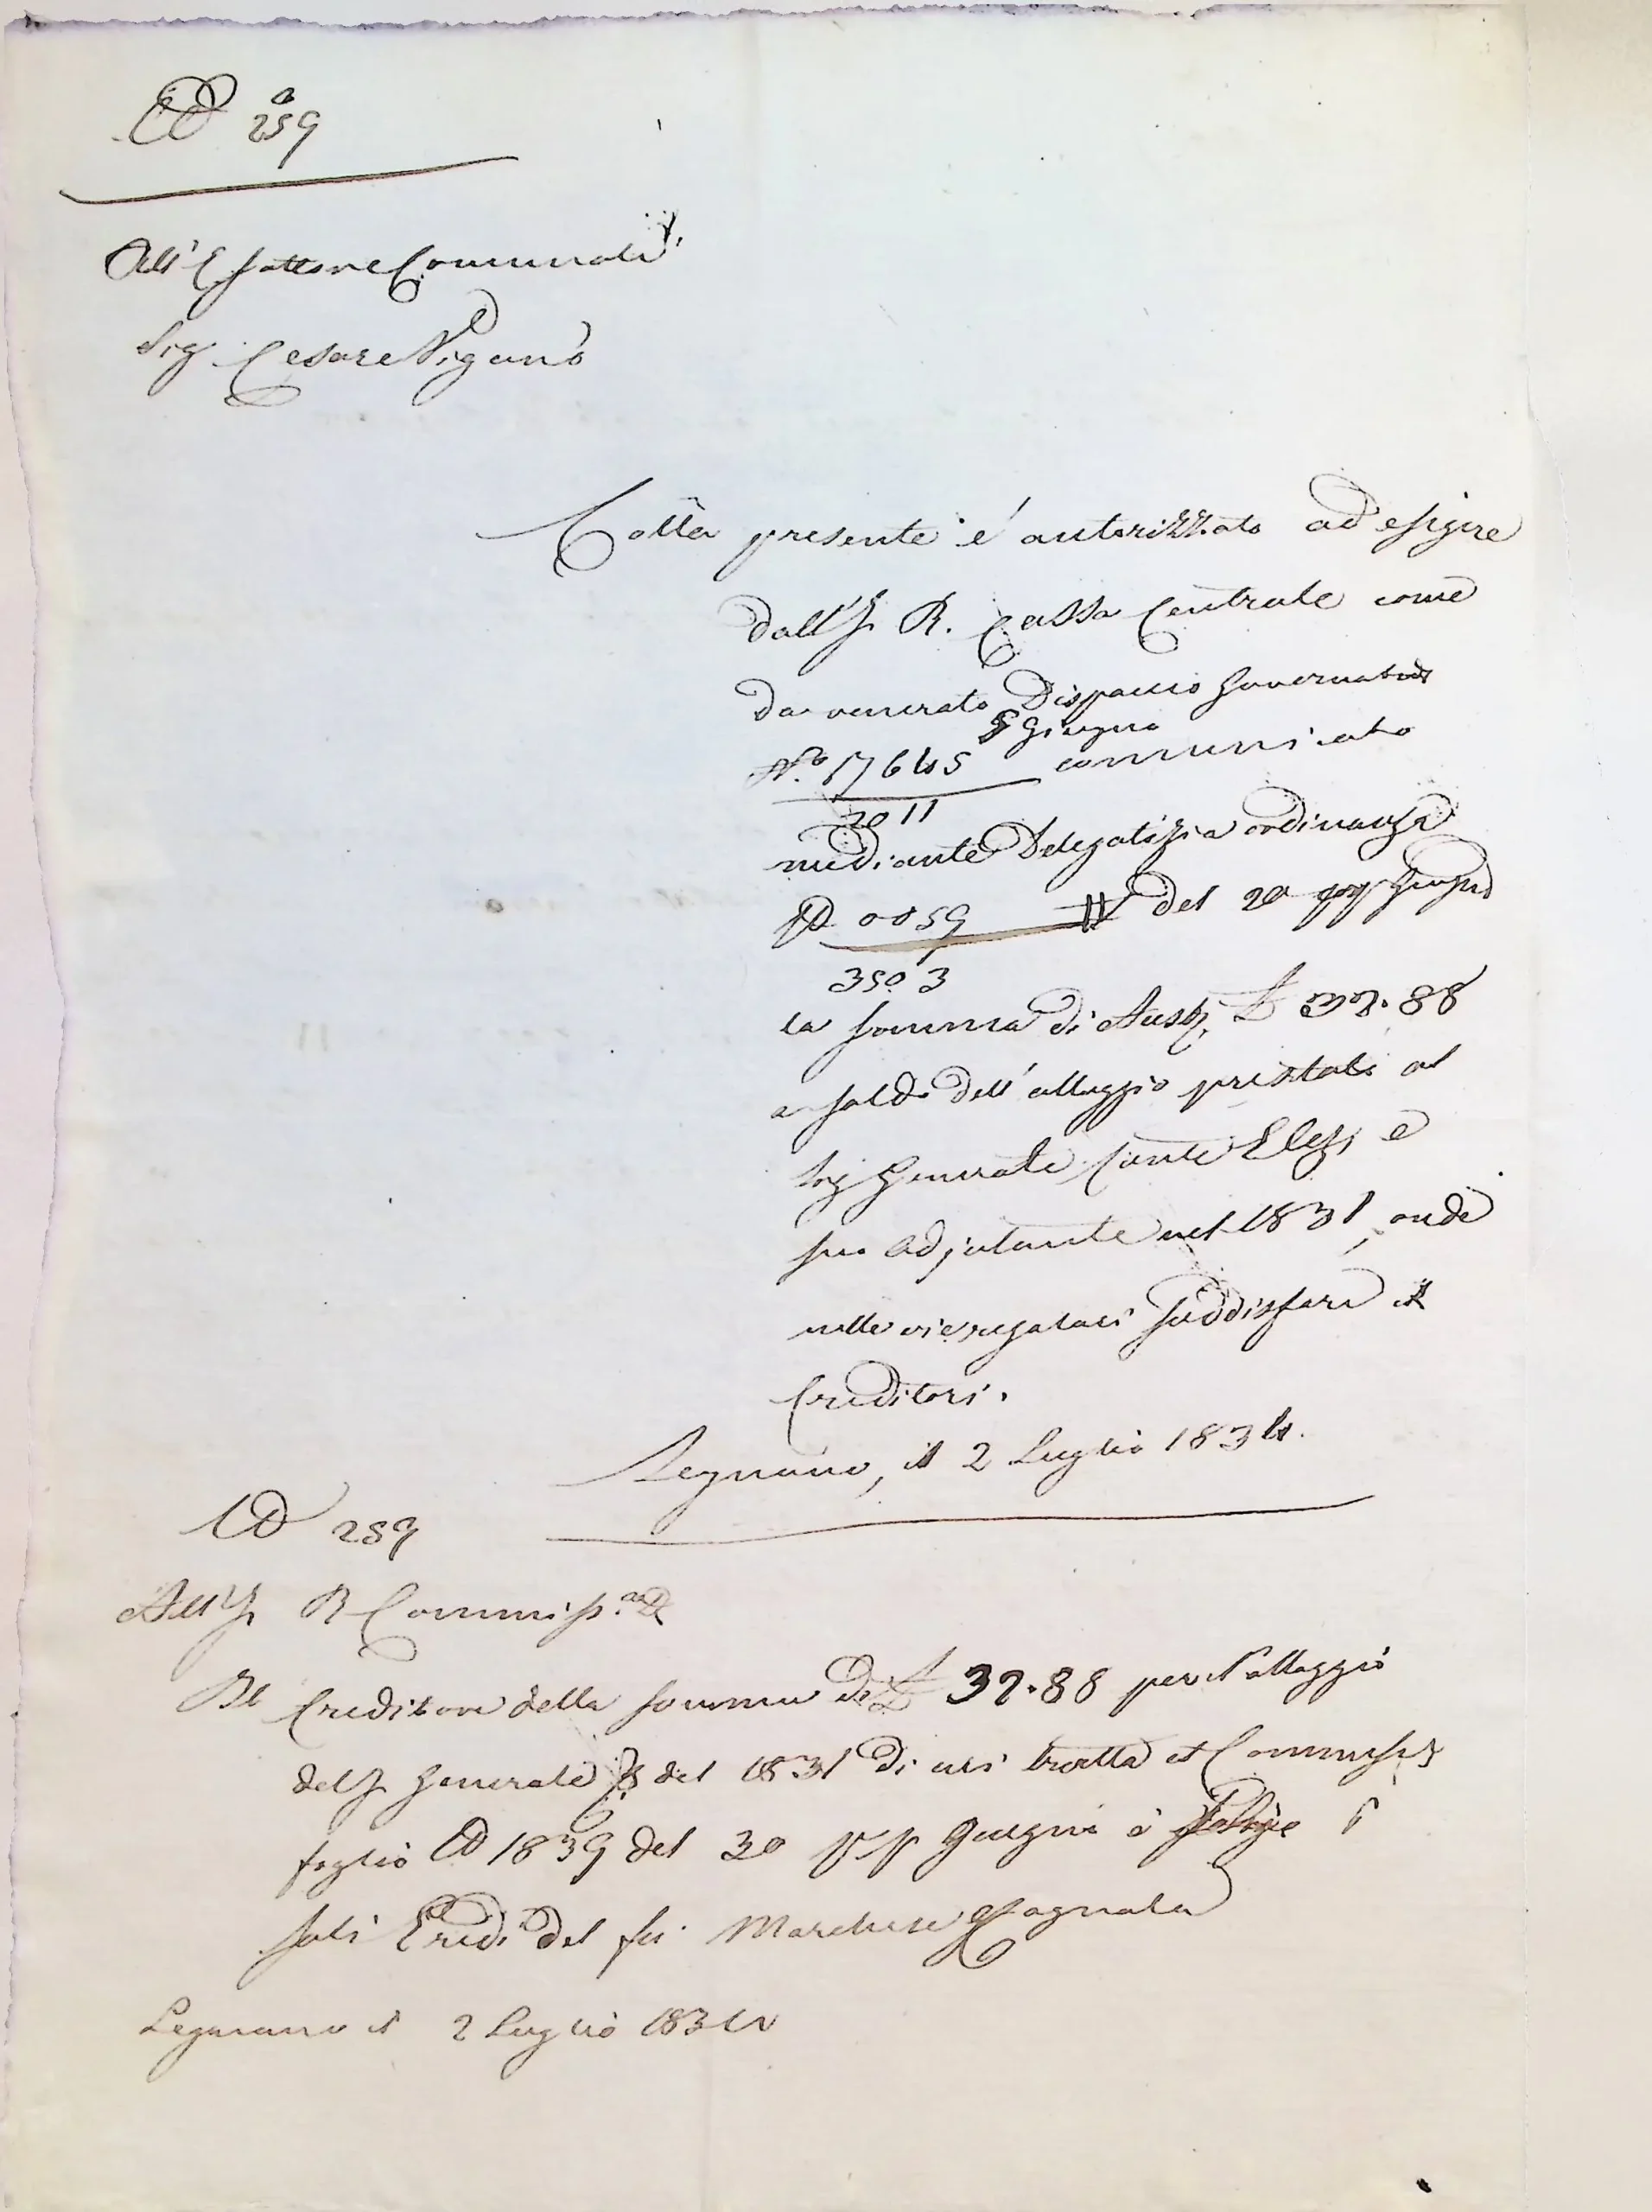 N° 259
All'Esattore Comunale
Sig. Cesare Viganò
Colla presente è autorizzato ad esigere
dall'I. R. Cassa Centrale come
da venerato Dispaccio Governativo
9 Giugno
N.° 17645 comunicato
2011
mediante Delegatizia ordinanza
del 20 pp Giugno
3503
la somma di Aust. L 32.88
a saldo dell'alloggio prestato al
Sig Generale Conte e
suo Adjutante nel 1831, onde
nelle vie regolari soddisfare il
Creditori.
Legnano, il 2 Luglio 1834.
N° 259
All'I. R Commiss.
Il Creditore della somma di L 32.88 per l'alloggio
del Generale del 1831 di cui tratta il Commiss
foglio N 1839 del 30 p p Giugno è
soli Eredi del fu Marchese Cagnola
Legnano il 2 Luglio 1834